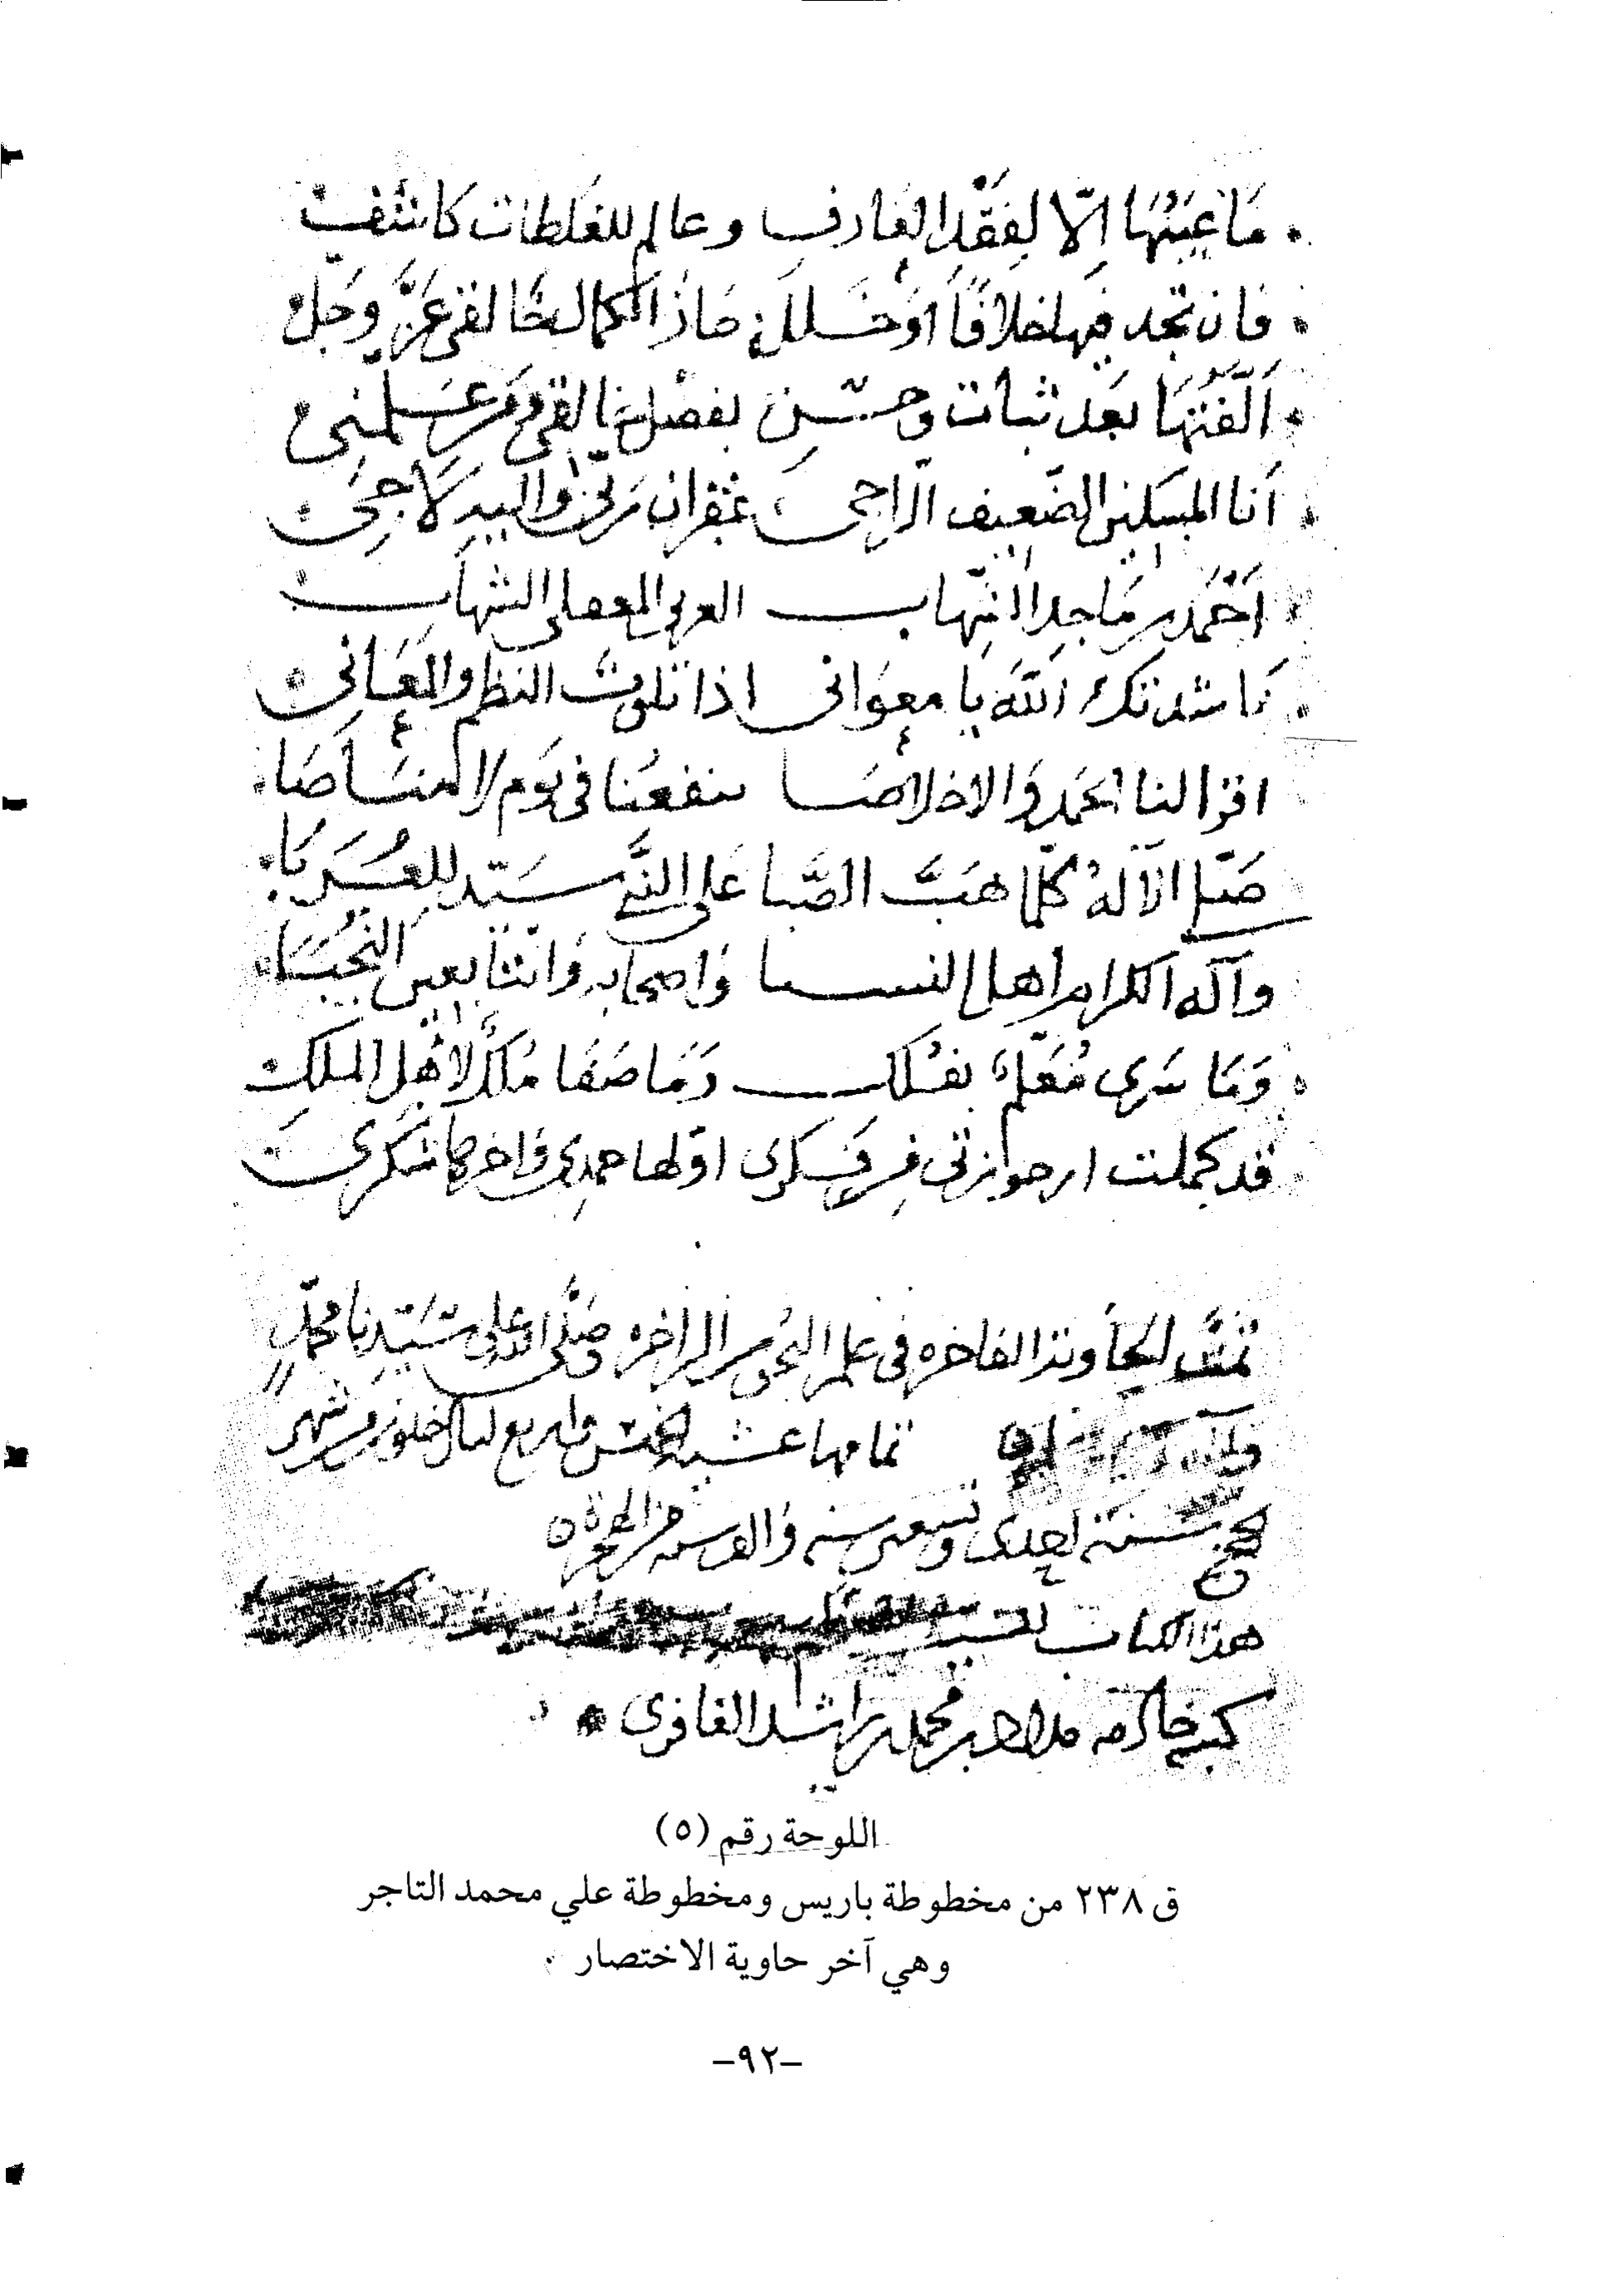 ما عبتها الا لفقد العارف وعالم للغلطات كاشف
فان تجد فيها خلافاً او خلل حاز الكمال خالقي عز وجل
الفتها بعد ثبات وحسن بفضل خالقي ومن علمني
انا المسكين الضعيف الراجي غفران ربي واليه لاجي
احمد بن ماجد الشهاب العربي المعقلي الشهاب
ناشدتك الله يا معواني اذا تلوت النظم والمعاني
اقرا لنا الحمد والاخلاصا ينفعنا في يوم لا مناصا
صلى الاله كلما هب الصبا على النبي سيد للعربا
وآله الكرام اهل النسبا واصحابه والتابعين النجبا
وما سرى معلم بفلك وما صفا ملك لاهل الملك
قد كملت ارجوازتي في فكري اولها حمدي واخرها شكري
تمت الحاوية الفاخره في علم البحور الزاخره وصلى الله على سيدنا محمد
تمامها عشية الخميس واربع ليال خلون من شهر
الحج سنة احدى وتسعين سنه والف سنه من الهجرة
هذا الكتاب
كتبه خادمه محمد بن راشد الغافري
اللوحة رقم (٥)
ق ٢٣٨ من مخطوطة باريس ومخطوطة علي محمد التاجر
وهي آخر حاوية الاختصار .
-٩٢-